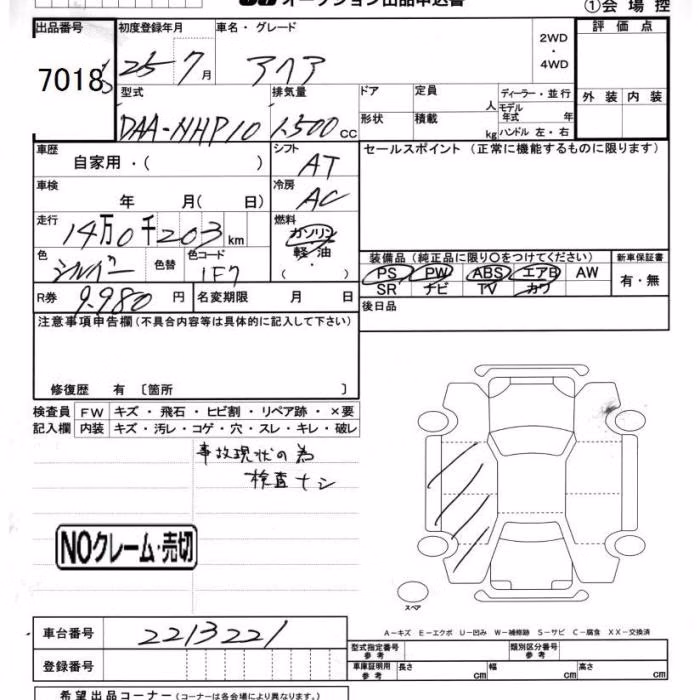 オークション出品申込書 ①会場控
出品番号 初度登録年月 車名・グレード 2WD ・ 4WD 評価点
7018 25-7月 アクア
型式 排気量 ドア 定員 人 ディーラー・並行 外装 内装
DAA-NHP10 1.500cc 形状 積載 kg モデル年式 年 ハンドル 左・右
車歴 自家用・( ) シフト AT セールスポイント (正常に機能するものに限ります)
車検 年 月( 日) 冷房 AC
走行 14万0千203km 燃料 ガソリン 軽油 ( ・ )
色 シルバー 色替 色コード 1F7 装備品 (純正品に限り○をつけてください) 新車保証書
PS PW ABS エアB AW 有・無
SR ナビ TV カワ
R券 9.980円 名変期限 月 日 後日品
注意事項申告欄(不具合内容等は具体的に記入して下さい)
修復歴 有 〔箇所 〕
検査員 FW キズ・飛石・ヒビ割・リペア跡・×要
記入欄 内装 キズ・汚レ・コゲ・穴・スレ・キレ・破レ
事故現状の為
検査ナシ
NOクレーム・売切
スペア
A-キズ E-エクボ U-凹み W-補修跡 S-サビ C-腐食 XX-交換済
車台番号 2213221 型式指定番号 参考 類別区分番号 参考
登録番号 車庫証明用 参考 長さ cm 幅 cm 高さ cm
希望出品コーナー (コーナーは各会場により異なります。)